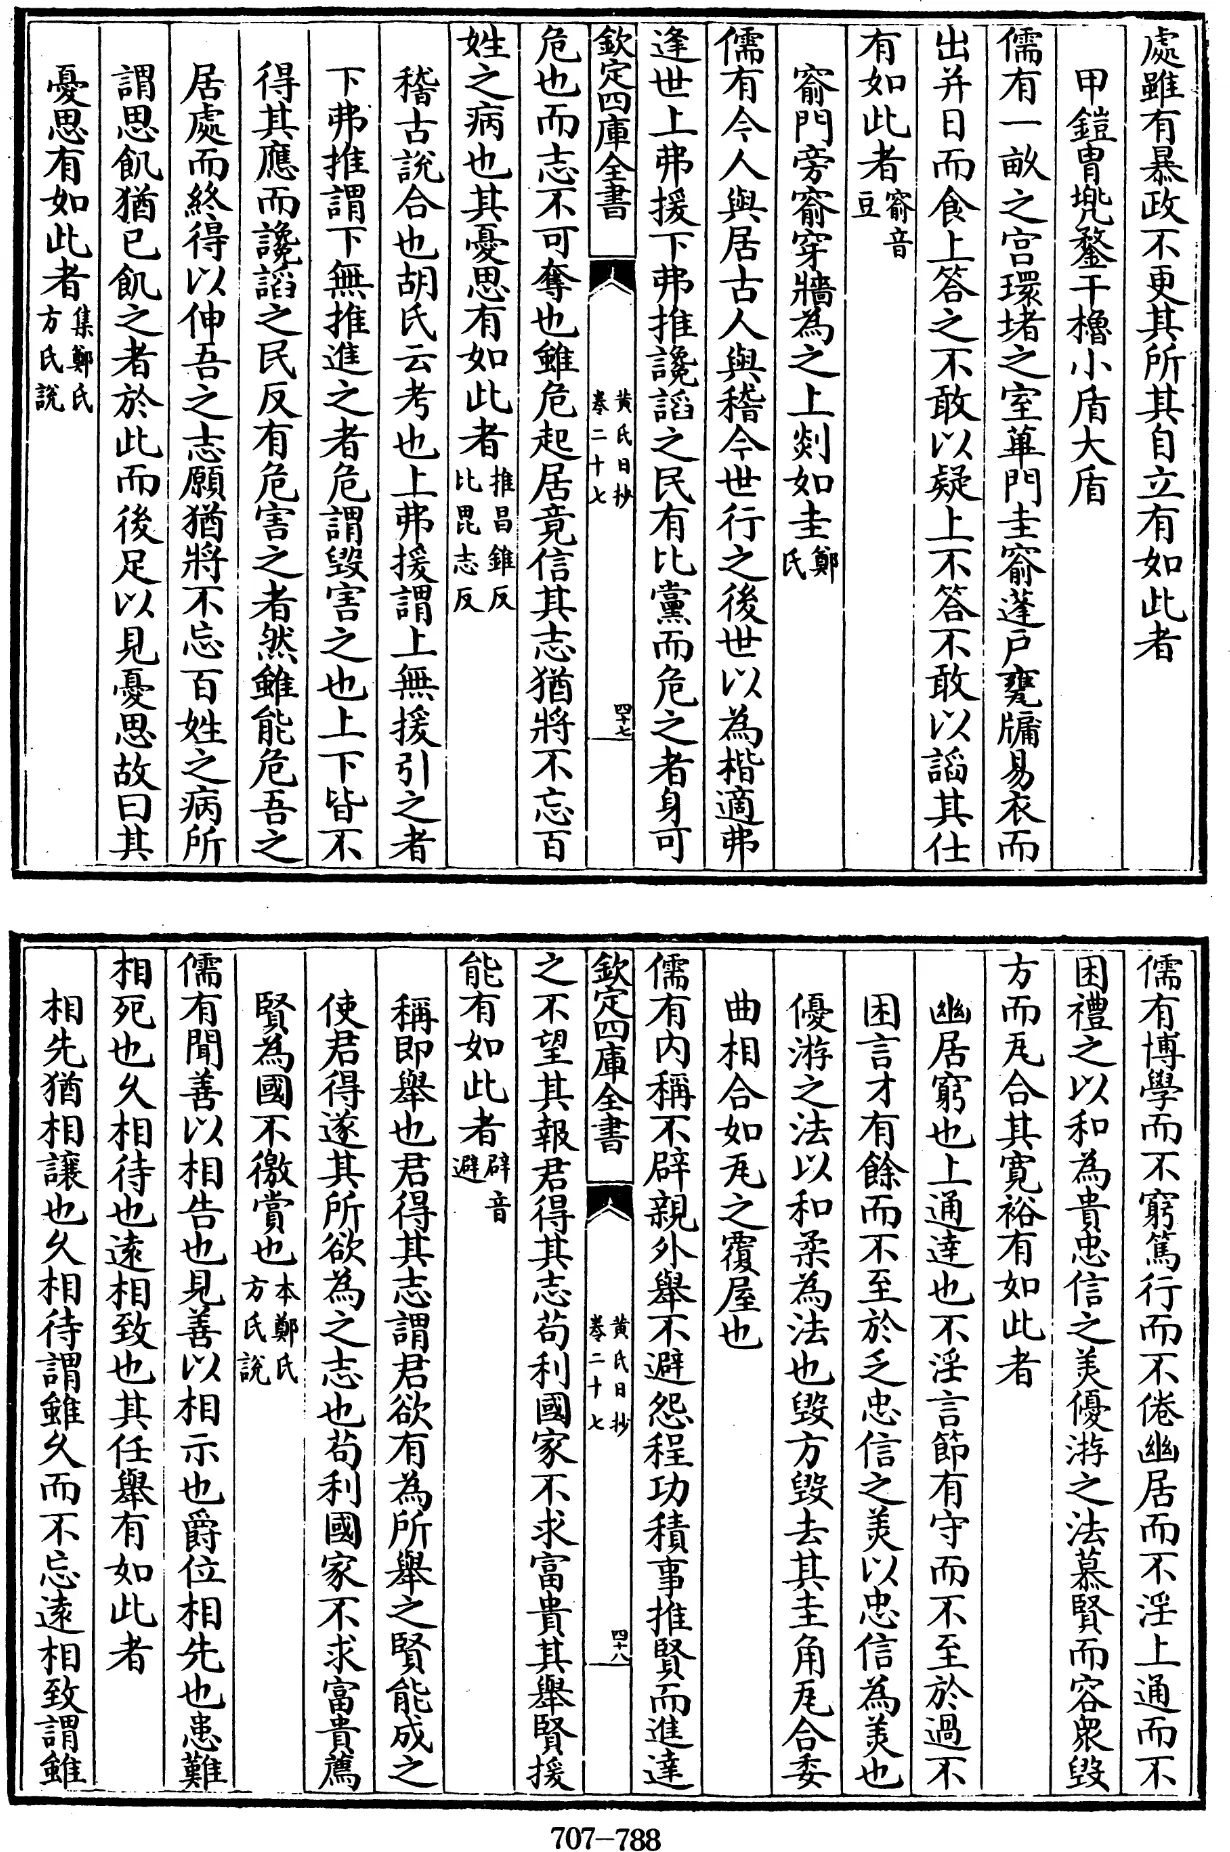 處雖有暴政不更其所其自立有如此者
甲鎧冑兠鍪干櫓小盾大盾
儒有一畝之宫環堵之室蓽門圭窬蓬戸甕牖易衣而
出并日而食上答之不敢以疑上不答不敢以諂其仕
有如此者窬音豆
窬門旁窬穿牆為之上剡如圭鄭氏
儒有今人與居古人與稽今世行之後世以為楷適弗
逢世上弗援下弗推讒諂之民有比黨而危之者身可
欽定四庫全書 黄氏日抄卷二十七 四十七
危也而志不可奪也雖危起居竟信其志猶將不忘百
姓之病也其憂思有如此者推昌錐反比毘志反
稽古說合也胡氏云考也上弗援謂上無援引之者
下弗推謂下無推進之者危謂毁害之也上下皆不
得其應而讒諂之民反有危害之者然雖能危吾之
居處而終得以伸吾之志願猶將不忘百姓之病所
謂思飢猶已飢之者於此而後足以見憂思故曰其
憂思有如此者集鄭氏方氏說
儒有博學而不窮篤行而不倦幽居而不淫上通而不
困禮之以和為貴忠信之美優游之法慕賢而容衆毁
方而瓦合其寛裕有如此者
幽居窮也上通達也不淫言節有守而不至於過不
困言才有餘而不至於乏忠信之美以忠信為美也
優游之法以和柔為法也毁方毁去其圭角瓦合委
曲相合如瓦之覆屋也
儒有内稱不辟親外舉不避怨程功積事推賢而進達
欽定四庫全書 黄氏日抄卷二十七 四十八
之不望其報君得其志苟利國家不求富貴其舉賢援
能有如此者辟音避
稱即舉也君得其志謂君欲有為所舉之賢能成之
使君得遂其所欲為之志也苟利國家不求富貴薦
賢為國不徼賞也本鄭氏方氏說
儒有聞善以相告也見善以相示也爵位相先也患難
相死也久相待也逺相致也其任舉有如此者
相先猶相讓也久相待謂雖久而不忘逺相致謂雖
707-788